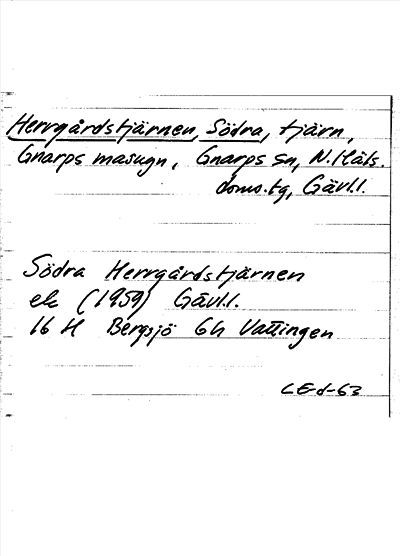 Herrgårdstjärnen, Södra, tjärn,
Gnarps masugn, Gnarps sn, N. Häls.
doms.tg, Gävl.l.
Södra Herrgårdstjärnen
ek (1959) Gävl.l.
16 H Bergsjö 6h Vattingen